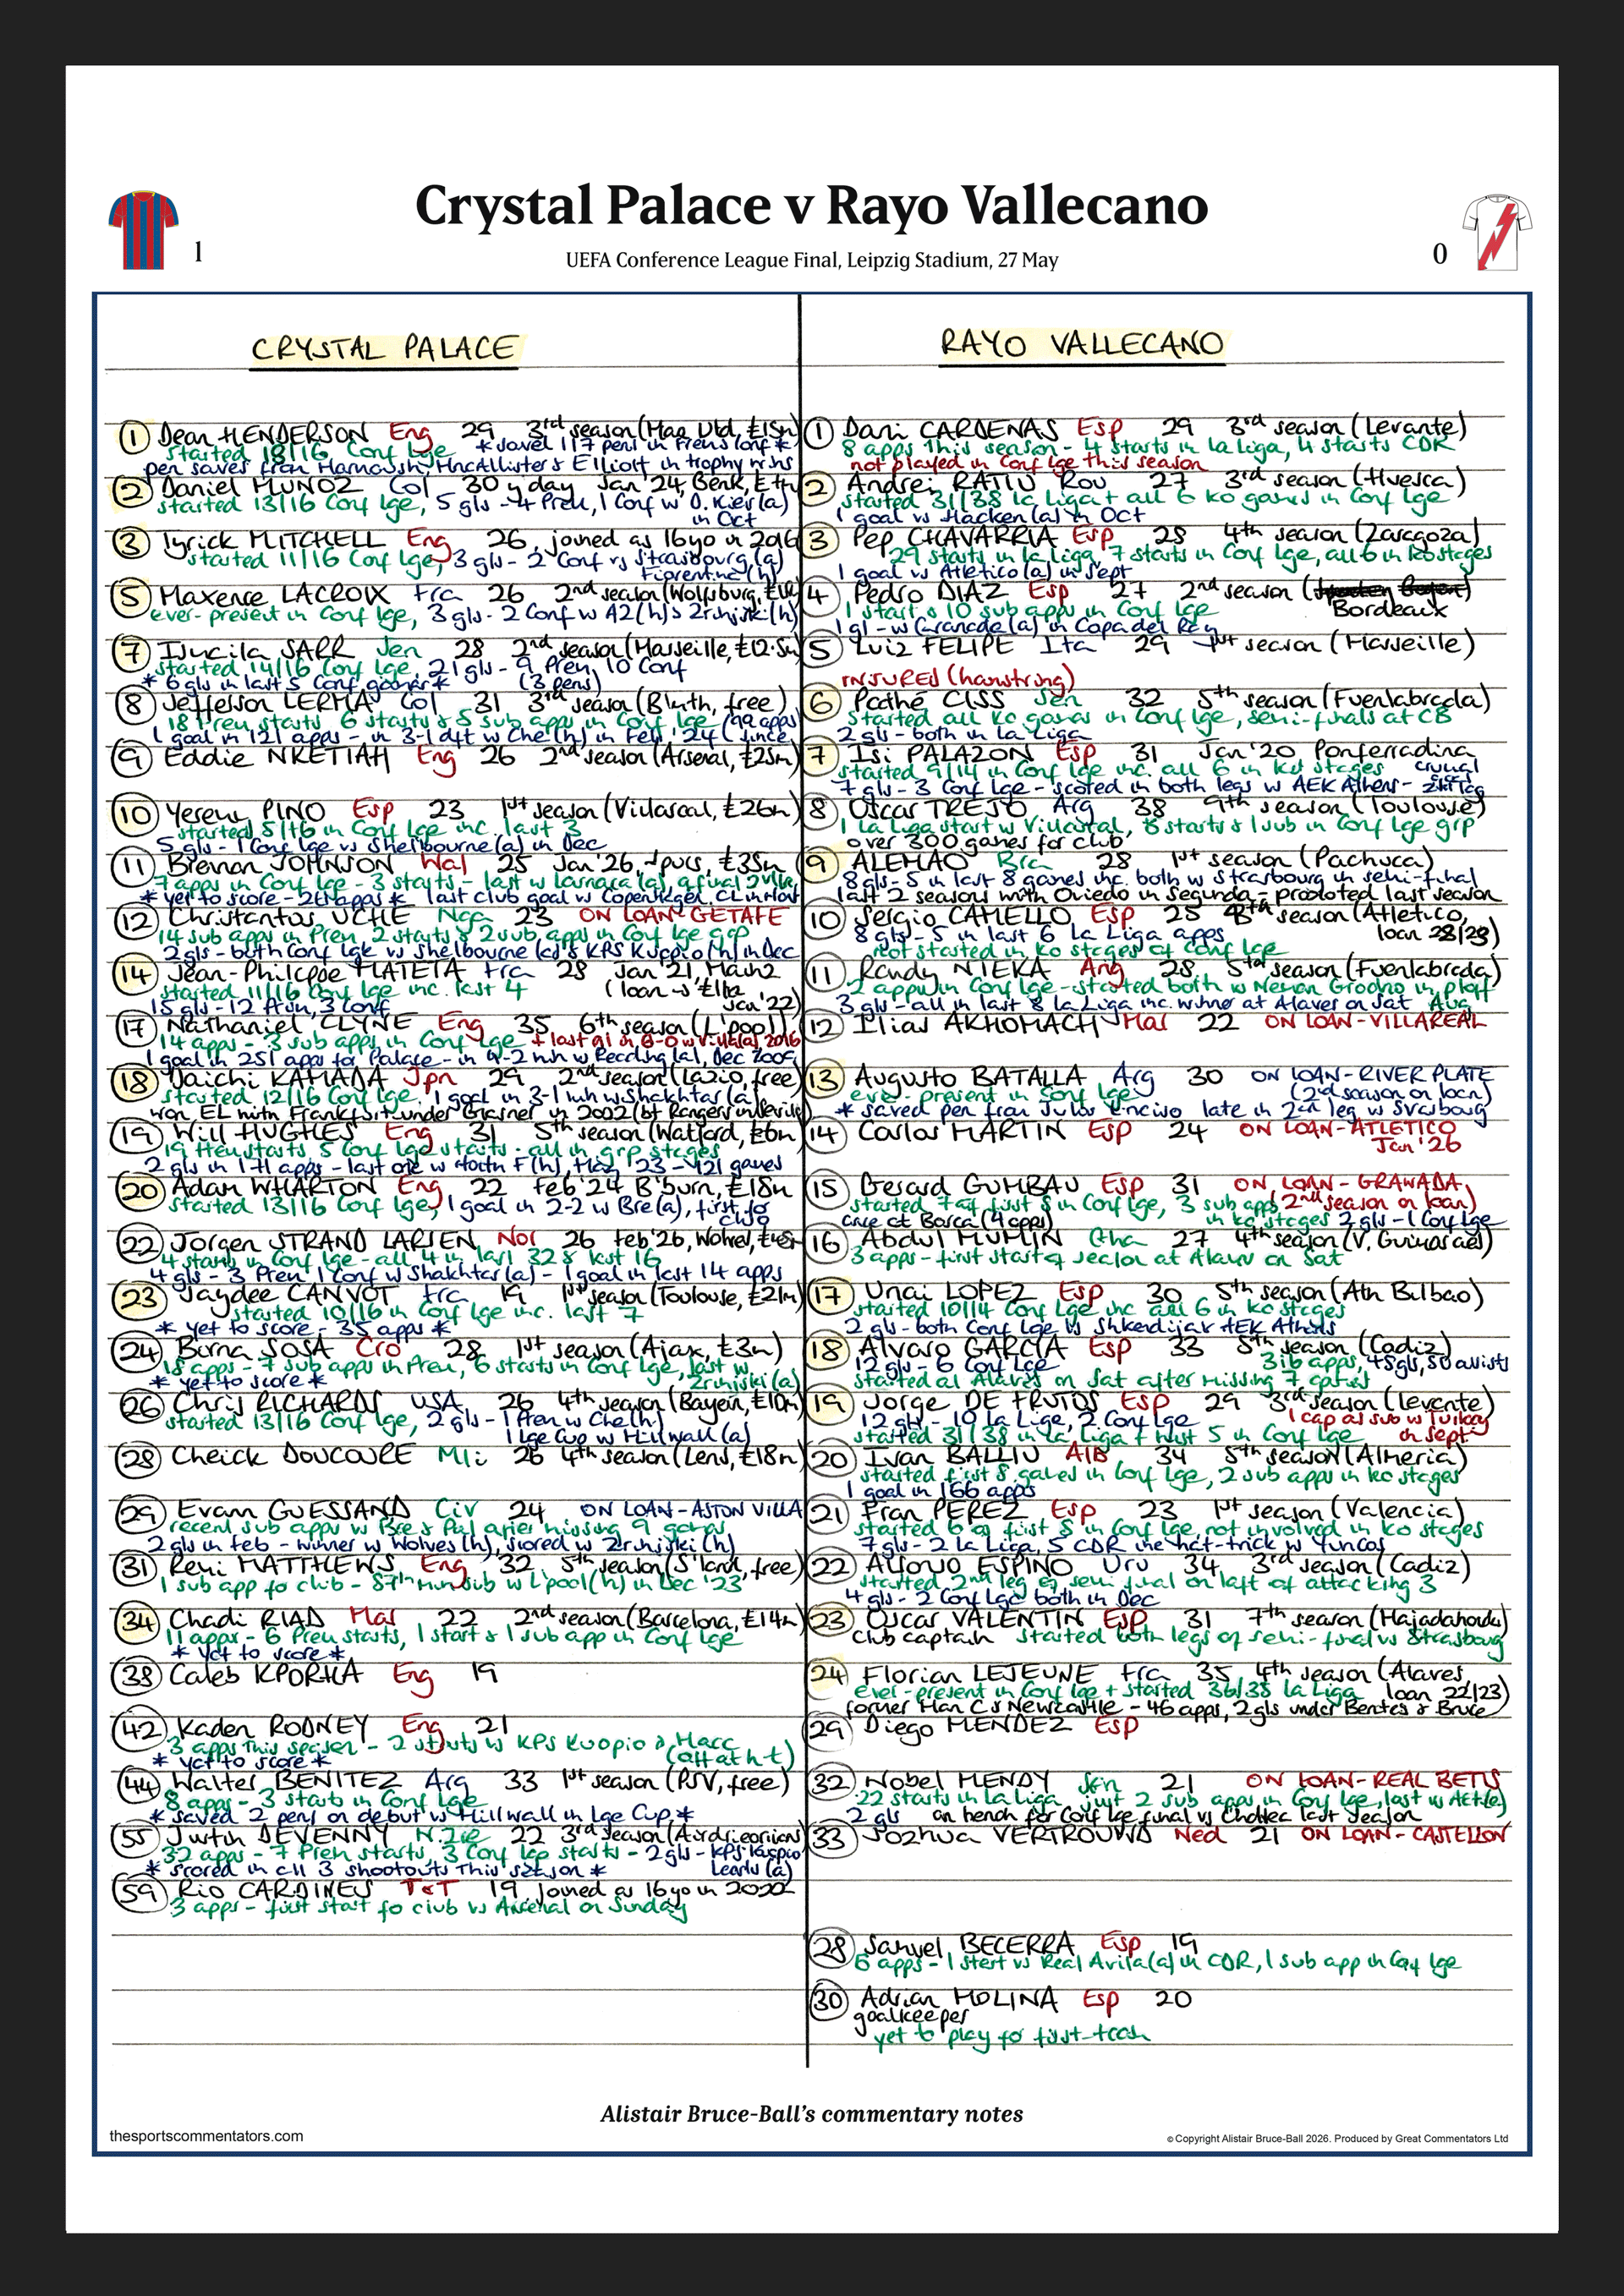 Crystal Palace v Rayo Vallecano
1
0
UEFA Conference League Final, Leipzig Stadium, 27 May
CRYSTAL PALACE
1 Dean HENDERSON Eng 29 3rd season (Man Utd, £15m)
started 16 Conf Lge
pen saves from Marmoush, MacAllister & Elliott in trophy
2 Daniel MUNOZ Col 30 y'day Jan '24, Genk,
started 13/16 Conf Lge, 5 gls - 4 Prem, 1 Conf w D. Kiev (a)
in Oct
3 Tyrick MITCHELL Eng 26, joined as 16yo in 2016
started 11/16 Conf Lge, 3 gls - 2 Conf vs Strasbourg (a)
Fiorentina (h)
5 Maxence LACROIX Fra 26 2nd season (Wolfsburg,
ever-present in Conf Lge, 3 gls - 2 Conf w AZ (h) & Zrinjski (h)
7 Ismaila SARR Sen 28 2nd season (Marseille, £12.5m)
started 14/16 Conf Lge, 21 gls - 9 Prem, 10 Conf
* 6 gls in last 5 Conf games * (3 pens)
8 Jefferson LERMA Col 31 3rd season (B'mth, free)
18 Prem starts, 6 starts & 5 sub apps in Conf Lge (99 apps
1 goal in 121 apps - in 3-1 dft w Che (h) in Feb '24 since
9 Eddie NKETIAH Eng 26 2nd season (Arsenal, £25m)
10 Yeremy PINO Esp 23 1st season (Villareal, £26m)
started 5/16 in Conf Lge inc. last 3
5 gls - 1 Conf Lge vs Shelbourne (a) in Dec
11 Brennan JOHNSON Wal 25 Jan '26, Spurs, £35m
7 apps in Conf Lge - 3 starts - last w Larnaca (a)
* yet to score - apps * last club goal w Copenhagen, CL in Nov
12 Christantus UCHE Nga 23 ON LOAN-GETAFE
14 sub apps in Prem, 2 starts & 2 sub apps in Conf Lge grp
2 gls - both Conf Lge w Shelbourne (a) & KPS Kuopio (h) in Dec
14 Jean-Philippe MATETA Fra 28 Jan '21, Mainz
started 11/16 Conf Lge inc. last 4 (loan
15 gls - 12 Prem, 3 Conf Jan '22)
17 Nathaniel CLYNE Eng 35 6th season (L'pool)
14 apps - 3 sub apps in Conf Lge
1 goal in 251 apps for Palace - in 4-2 win w Reading (a), Dec 2009
18 Daichi KAMADA Jpn 29 2nd season (Lazio, free)
started 12/16 Conf Lge, 1 goal in 3-1 win w Shakhtar (a)
won EL with Frankfurt under Glasner in 2002 (bt Rangers in Seville)
19 Will HUGHES Eng 31 5th season (Watford, £6m)
19 Prem starts, 5 Conf Lge starts - all in grp stages
2 gls in 171 apps - last one w Nottm F (h), May '23 - 121 games
20 Adam WHARTON Eng 22 Feb '24 B'burn, £18m
started 13/16 Conf Lge, 1 goal in 2-2 w Bre (a), first for
club
22 Jorgen STRAND LARSEN Nor 26 Feb '26, Wolves,
4 starts in Conf Lge - all 4 in last 32 & last 16
4 gls - 3 Prem, 1 Conf w Shakhtar (a) - 1 goal in last 14 apps
23 Jaydee CANVOT Fra 19 1st season (Toulouse, £21m)
started 10/16 in Conf Lge inc. last 7
* yet to score - 35 apps *
24 Borna SOSA Cro 28 1st season (Ajax, £3m)
18 apps - 7 sub apps in Prem, 6 starts in Conf Lge, last w
* yet to score * Zrinjski (a)
26 Chris RICHARDS USA 26 4th season (Bayern, £10m)
started 13/16 Conf Lge, 2 gls - 1 Prem w Che (h)
1 Lge Cup w Millwall (a)
28 Cheick DOUCOURE Mli 26 4th season (Lens, £18m)
29 Evann GUESSAND Civ 24 ON LOAN-ASTON VILLA
recent sub apps w Bre & Pal after missing 9 games
2 gls in Feb - winner w Wolves (h), scored w Zrinjski (h)
31 Remi MATTHEWS Eng 32 5th season (S'land, free)
1 sub app for club - 87th min sub w L'pool (h) in Dec '23
34 Chadi RIAD Mar 22 2nd season (Barcelona, £14m)
11 apps - 6 Prem starts, 1 start & 1 sub app in Conf Lge
* yet to score *
38 Caleb KPORHA Eng 19
42 Kaden RODNEY Eng 21
3 apps this season - 2 starts w KPS Kuopio & Macc
* yet to score * (off at h-t)
44 Walter BENITEZ Arg 33 1st season (PSV, free)
8 apps - 3 starts in Conf Lge
* saved 2 pens on debut vs Millwall in Lge Cup *
55 Justin DEVENNY N.Ire 22 3rd season (Airdrieonians)
32 apps - 7 Prem starts, 3 Conf Lge starts - 2 gls - KPS Kuopio
* scored in all 3 shootouts this season * Leeds (a)
59 Rio CARDINES T&T 19, joined as 16yo in 2022
3 apps - first start for club vs Arsenal on Sunday
RAYO VALLECANO
1 Dani CARDENAS Esp 29 3rd season (Levante)
8 apps this season - 4 starts in La Liga, 4 starts CDR
not played in Conf Lge this season
2 Andrei RATIU Rou 27 3rd season (Huesca)
started 31/38 La Liga + all 6 ko games in Conf Lge
1 goal vs Hacken (a) in Oct
3 Pep CHAVARRIA Esp 28 4th season (Zaragoza)
29 starts in La Liga, 7 starts in Conf Lge, all 6 in ko stages
1 goal vs Atletico (a) in Sept
4 Pedro DIAZ Esp 27 2nd season
1 start & 10 sub apps in Conf Lge Bordeaux
1 gl - w Granada (a) in Copa del Rey
5 Luiz FELIPE Ita 29 1st season (Marseille)
INJURED (hamstring)
6 Pathé CISS Sen 32 5th season (Fuenlabrada)
started all ko games in Conf Lge, semi-finals at CB
2 gls - both in La Liga
7 Isi PALAZON Esp 31 Jan '20 Ponferradina
started 9/14 in Conf Lge inc. all 6 in ko stages crucial
7 gls - 3 Conf Lge - scored in both legs w AEK Athens -
8 Oscar TREJO Arg 38 9th season (Toulouse)
1 La Liga start w Villareal, 8 starts & 1 sub in Conf Lge grp
over 300 games for club
9 ALEMAO Bra 28 1st season (Pachuca)
8 gls - 5 in last 8 games inc. both w Strasbourg in semi-final
last 2 seasons with Oviedo in Segunda - promoted last season
10 Sergio CAMELLO Esp 25 season (Atletico,
8 gls - 5 in last 6 La Liga apps loan
not started in ko stages of Conf Lge
11 Randy NTEKA Ang 28 5th season (Fuenlabrada)
2 apps in Conf Lge - started both w Neman Grodno in ploff
3 gls - all in last 8 La Liga inc. winner at Alaves on Sat Aug
12 Ilias AKHOMACH Mar 22 ON LOAN-VILLAREAL
13 Augusto BATALLA Arg 30 ON LOAN-RIVER PLATE
ever-present in Conf Lge (2nd season on loan)
* saved pen from Julio Enciso late in 2nd leg w Strasboug
14 Carlos MARTIN Esp 24 ON LOAN-ATLETICO
Jan '26
15 Gerard GUMBAU Esp 31 ON LOAN-GRANADA
started 7 of first 8 in Conf Lge, 3 sub apps (2nd season on loan)
once at Barca (4 apps) in ko stages 2 gls - 1 Conf Lge
16 Abdul MUMIN Gha 27 4th season (V. Guimaraes)
3 apps - first start of season at Alaves on Sat
17 Unai LOPEZ Esp 30 5th season (Ath Bilbao)
started 10/14 Conf Lge inc all 6 in ko stages
2 gls - both Conf Lge vs Shkendija & AEK Athens
18 Alvaro GARCIA Esp 33 8th season (Cadiz)
12 gls - 6 Conf Lge 316 apps, 45 gls, 50 assists
started at Alaves on Sat after missing 7 games
19 Jorge DE FRUTOS Esp 29 3rd season (Levante)
12 gls - 10 La Liga, 2 Conf Lge 1 cap as sub w Turkey
started 31/38 in La Liga + last 5 in Conf Lge in Sept
20 Ivan BALLIU Alb 34 5th season (Almeria)
started first 8 games in Conf Lge, 2 sub apps in ko stages
1 goal in 166 apps
21 Fran PEREZ Esp 23 1st season (Valencia)
started 6 of first 8 in Conf Lge, not involved in ko stages
7 gls - 2 La Liga, 5 CDR inc hat-trick w Yuncos
22 Alfonso ESPINO Uru 34 3rd season (Cadiz)
started 2nd leg of semi final on left of attacking 3
4 gls - 2 Conf Lge both in Dec
23 Oscar VALENTIN Esp 31 7th season (Majadahonda)
club captain started both legs of semi-final vs Strasboug
24 Florian LEJEUNE Fra 35 4th season (Alaves,
ever-present in Conf Lge + started 36/38 La Liga loan 22/23)
former Man C & Newcastle - 46 apps, 2 gls under Benitez & Bruce
29 Diego MENDEZ Esp
32 Nobel MENDY Sen 21 ON LOAN-REAL BETIS
22 starts in La Liga, just 2 sub apps in Conf Lge, last w AEK (a)
2 gls on bench for Conf Lge final vs Chelsea last season
33 Jozhua VERTROUWD Ned 21 ON LOAN-CASTELLON
28 Samuel BECERRA Esp 19
6 apps - 1 start vs Real Avila (a) in CDR, 1 sub app in Conf Lge
30 Adrian MOLINA Esp 20
goalkeeper
yet to play for first-team
Alistair Bruce-Ball's commentary notes
thesportscommentators.com
© Copyright Alistair Bruce-Ball 2026. Produced by Great Commentators Ltd